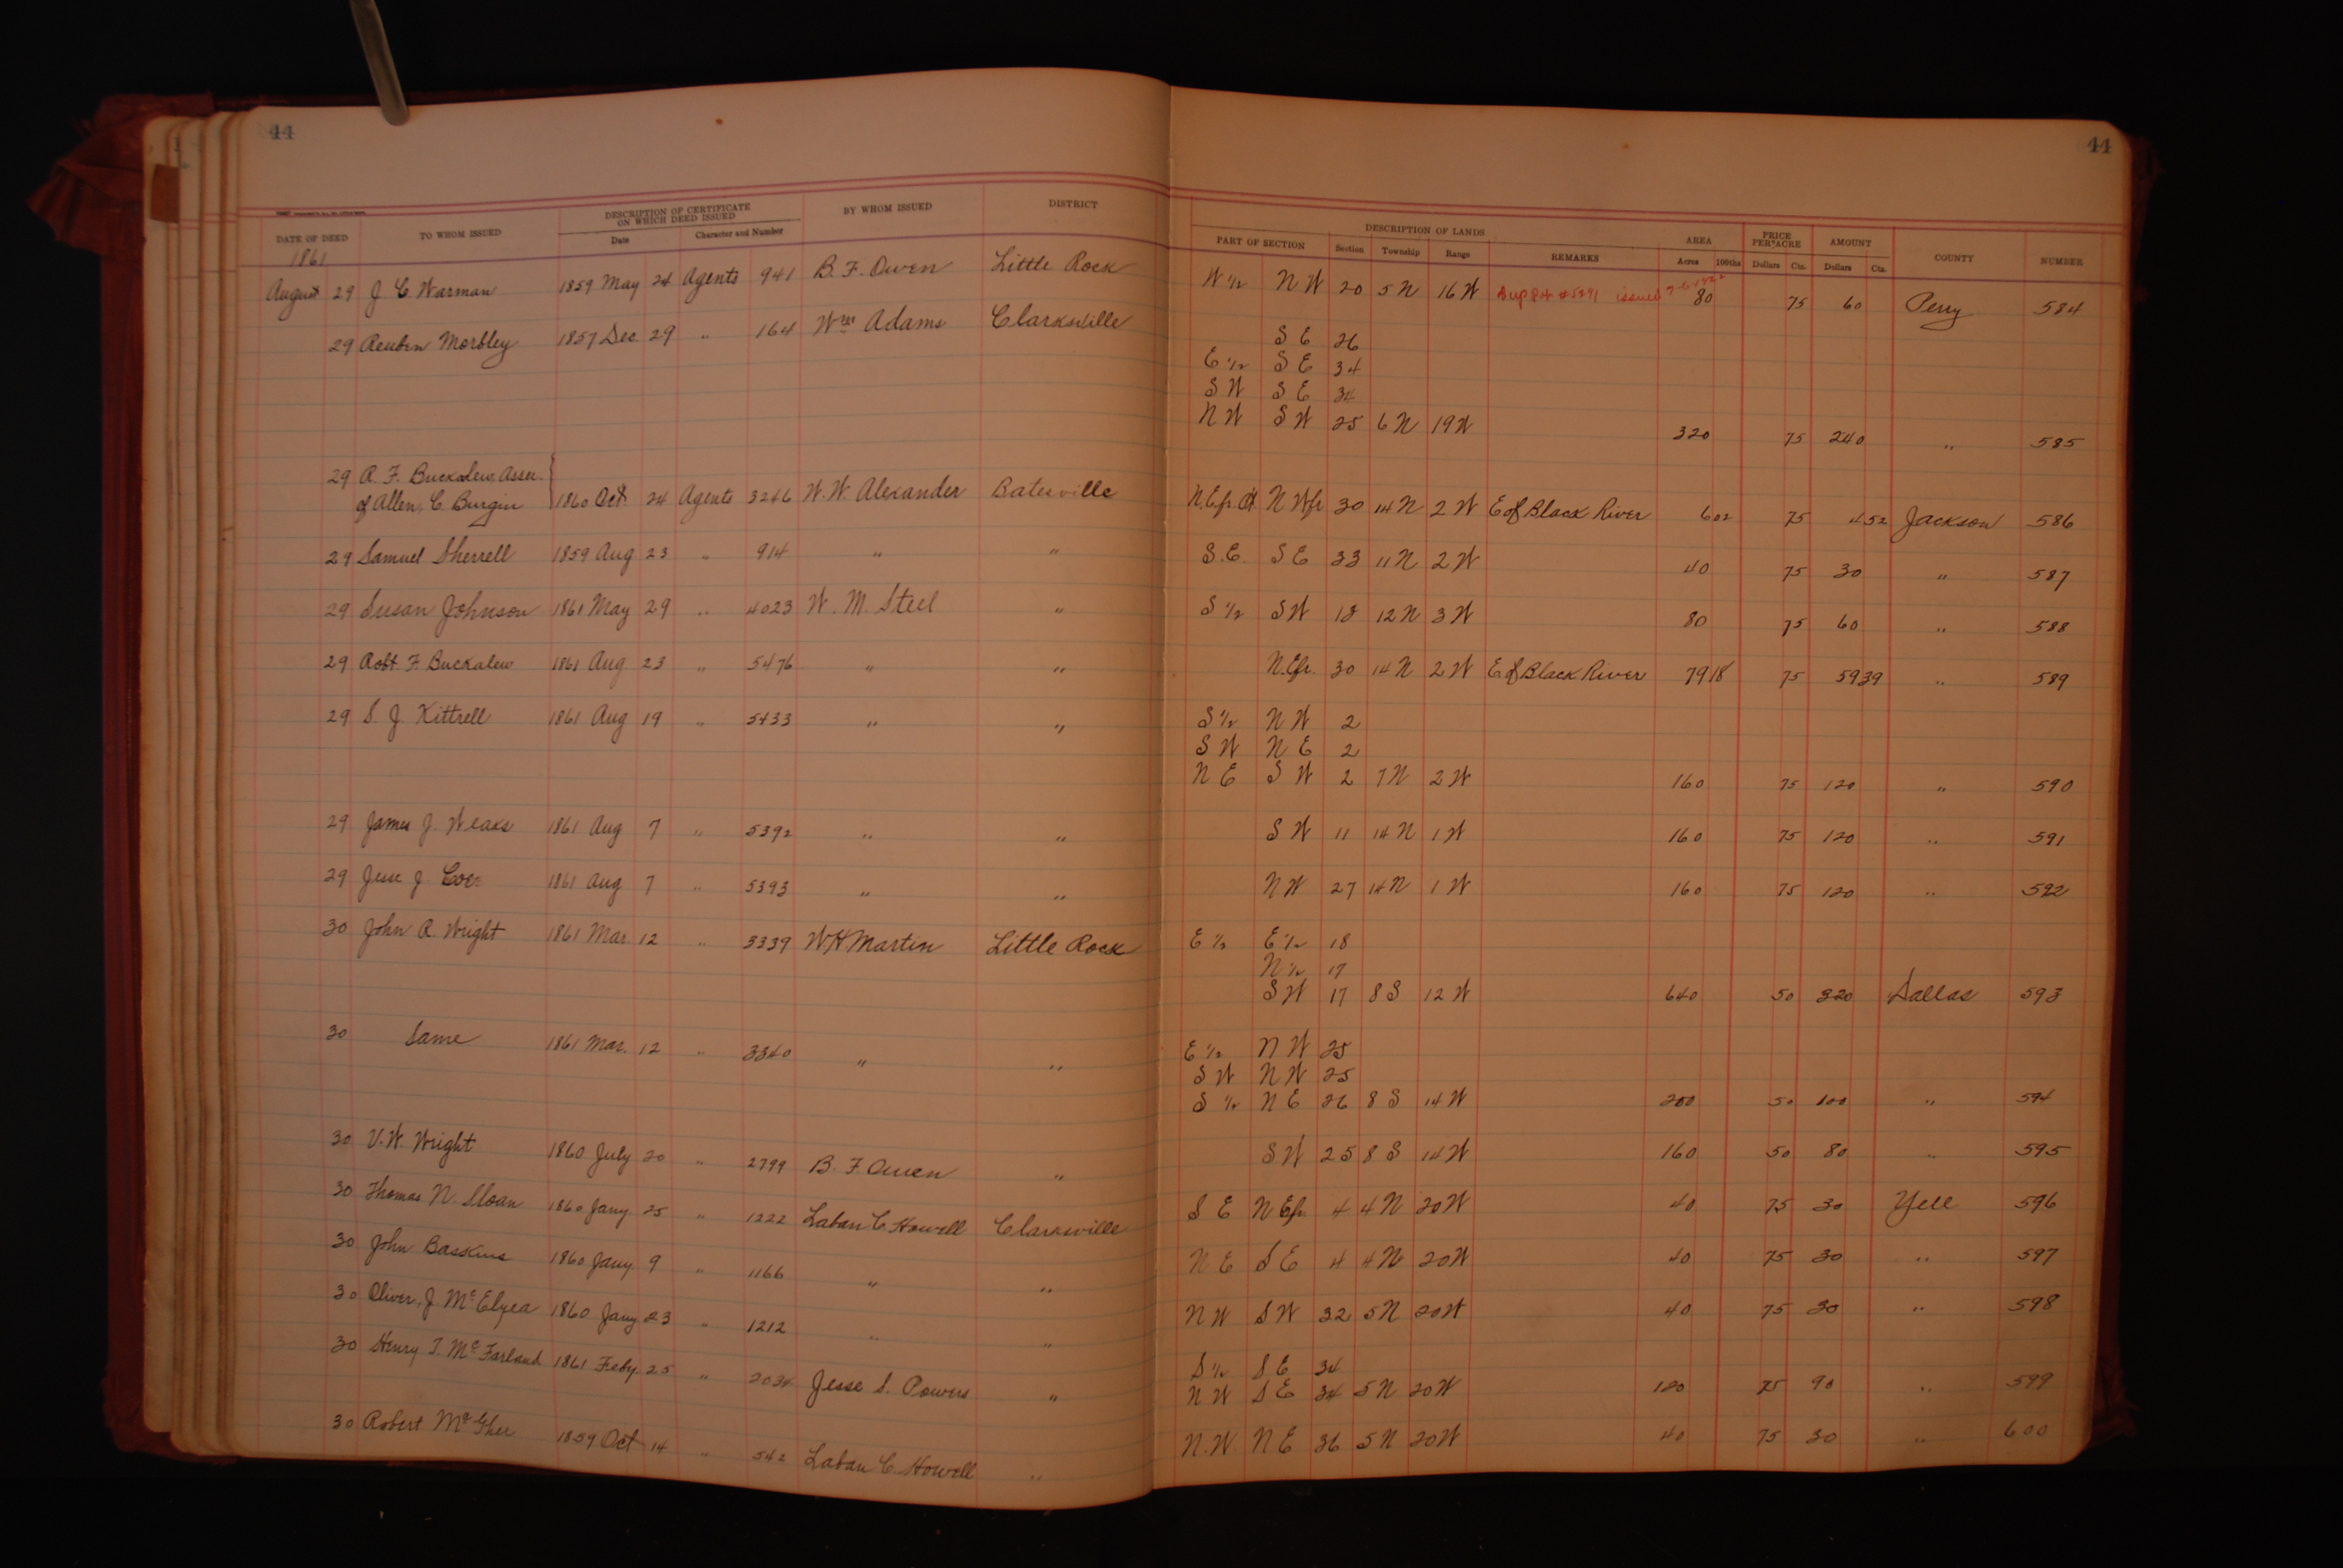 44 44
DATE OF DEED TO WHOM ISSUED DESCRIPTION OF CERTIFICATE ON WHICH DEED ISSUED Date Character and Number BY WHOM ISSUED DISTRICT DESCRIPTION OF LANDS PART OF SECTION Section Township Range REMARKS AREA Acres 100ths PRICE PER ACRE Dollars Cts. AMOUNT Dollars Cts. COUNTY NUMBER
1861
August 29 J. C. Warman 1859 May 24 Agents 941 B. F. Owen Little Rock W 1/2 N W 20 5 N 16 W issued 80 75 60 Perry 584
29 Reuben Mobley 1857 Dec 29 " 164 Wm Adams Clarksville S E 26
E 1/2 S E 34
S W S E 34
N W S W 25 6 N 19 W 320 75 240 " 585
29 R. F. Buckalew, Assee.
of Allen, C. Burgin 1860 Oct 24 Agents 3246 W. W. Alexander Batesville N. E fr. & N W fr 30 14 N 2 W E of Black River 6 02 75 4 52 Jackson 586
29 Samuel Sherrell 1859 Aug 23 " 914 " " S. E. S E 33 11 N 2 W 40 75 30 " 587
29 Susan Johnson 1861 May 29 " 4023 W. M. Steel " S 1/2 S W 18 12 N 3 W 80 75 60 " 588
29 Robt. F. Buckalew 1861 Aug 23 " 5476 " " N. E fr. 30 14 N 2 W E of Black River 79 18 75 59 39 " 589
29 S. J. Kittrell 1861 Aug 19 " 5433 " " S 1/2 N W 2
S W N E 2
N E S W 2 7 N 2 W 160 75 120 " 590
29 James J. Weaks 1861 Aug 7 " 5392 " " S W 11 14 N 1 W 160 75 120 " 591
29 Jesse J. 1861 Aug 7 " 5393 " " N W 27 14 N 1 W 160 75 120 " 592
30 John R. Wright 1861 Mar. 12 " 3339 W H Martin Little Rock E 1/2 E 1/2 18
N 1/2 17
S W 17 8 S 12 W 640 50 320 Dallas 593
30 Same 1861 Mar. 12 " 3340 " " E 1/2 N W 25
S W N W 25
S 1/2 N E 26 8 S 14 W 200 50 100 " 594
30 V. W. Wright 1860 July 20 " 2799 B. F. Owen " S W 25 8 S 14 W 160 50 80 " 595
30 Thomas N. Sloan 1860 Jany 25 " 1222 Laban C. Howell Clarksville S E N E fr. 4 4 N 20 W 40 75 30 Yell 596
30 John Baskins 1860 Jany. 9 " 1166 " " N E S E 4 4 N 20 W 40 75 30 " 597
30 Oliver, J. McElyea 1860 Jany 23 " 1212 " " N W S W 32 5 N 20 W 40 75 30 " 598
30 Henry T. McFarland 1861 Feby. 25 " 2034 Jesse S. Powers " S 1/2 S E 34
N W S E 34 5 N 20 W 120 75 90 " 599
30 Robert McGher 1859 Oct 14 " 542 Laban C. Howell " N. W. N E 36 5 N 20 W 40 75 30 " 600